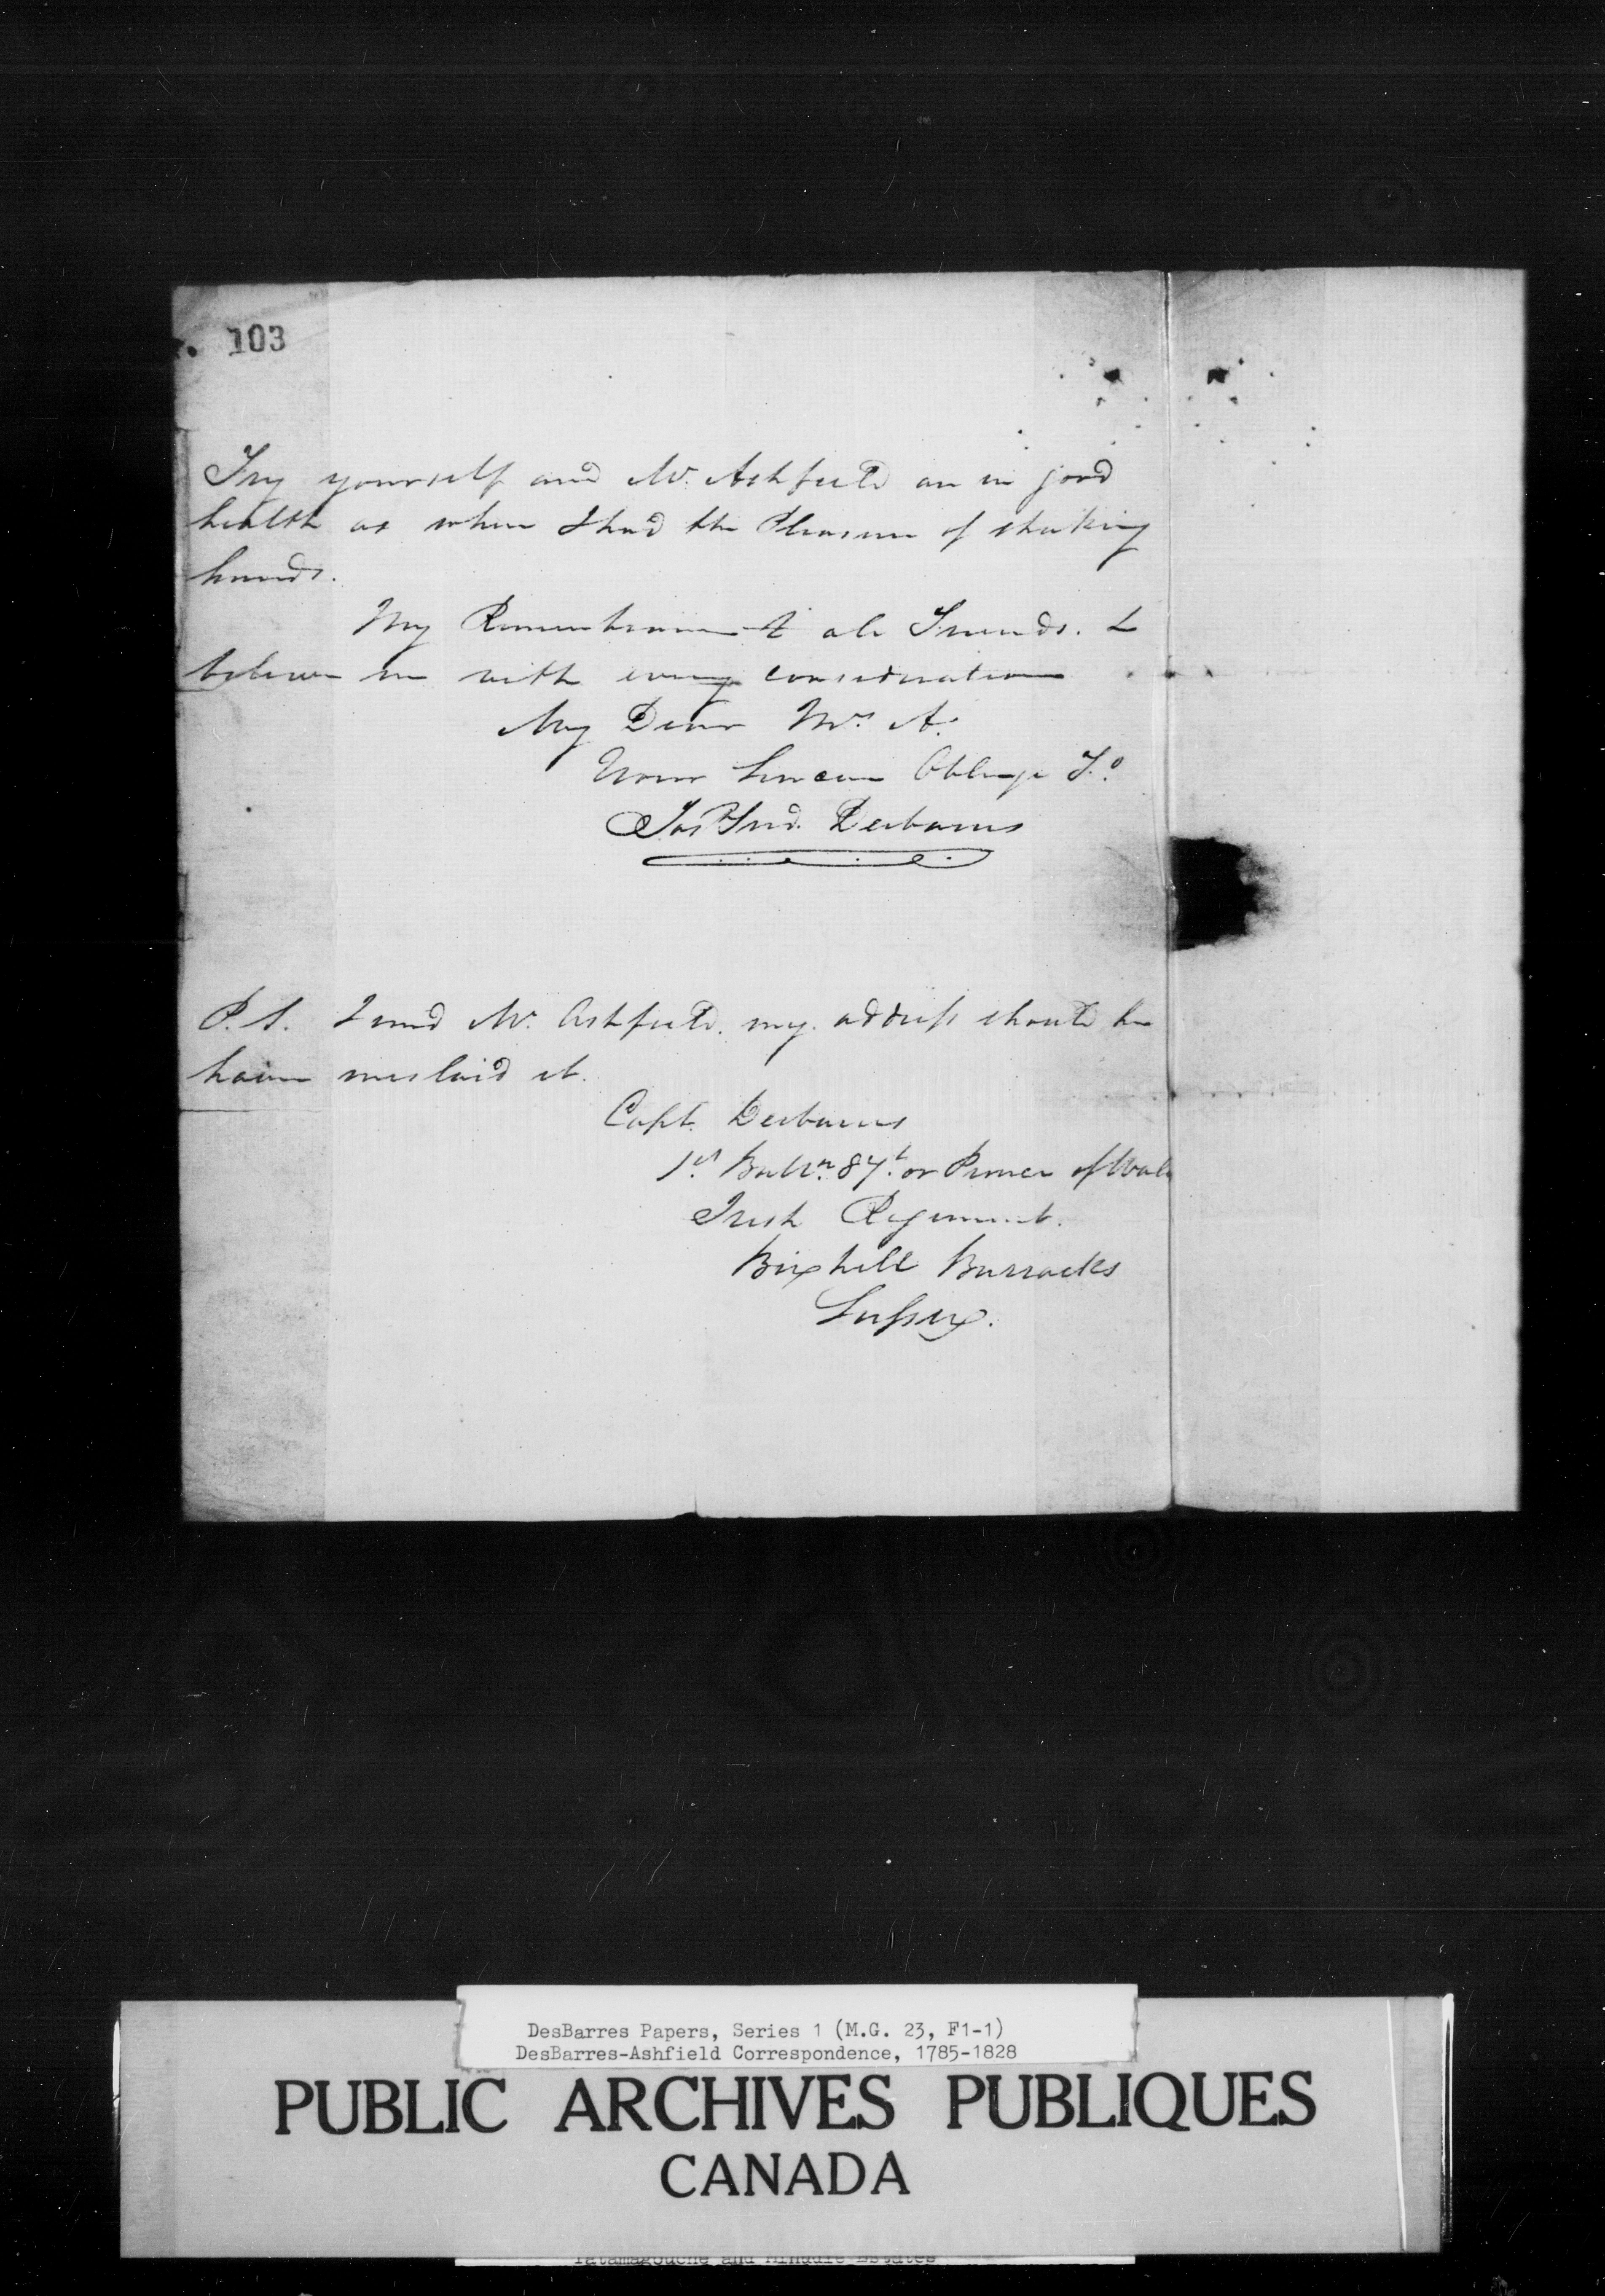 103
Try yourself and Mr. Ashfield are in good
health as when I had the Pleasure of shaking
hands.
My Remembrance to all Friends. &
believe me with every consideration
My Dear Mrs. A.
Your Sincere Oblige
Josh Fred. Desbarres
P.S. I send Mr. Ashfield. my. address should he
have mislaid it.
Capt. Desbarres
1st Battn. 87t. or Prince of Wales
Irish Regiment.
Bexhill Barracks
Sussex.
DesBarres Papers, Series 1 (M.G. 23, F1-1)
DesBarres-Ashfield Correspondence, 1785-1828
PUBLIC ARCHIVES PUBLIQUES
CANADA
Tatamagouche and Minudie Estates